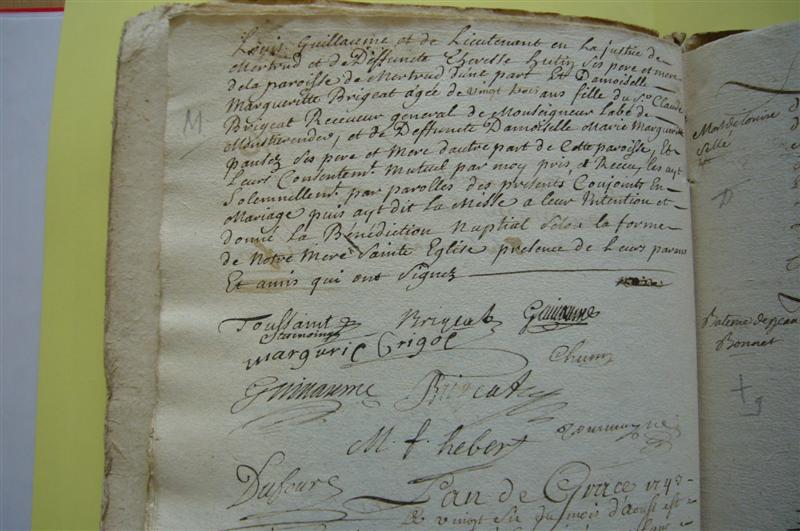 Louis Guillaume et de Lieutenant en La justice de
Mertrud et de Deffuncte Theresse hutin ses pere et mere
de la paroisse de Mertrud dune part Et Damoiselle
Marguerette Brigeat agée de vingt trois ans fille du Sr. Claude
Brigeat Receveur general de Monseigneur Labé de
Moustierender, et de Deffuncte Damoiselle Marie Marguerite
pauser ses pere et Mere dautre part de Cette paroisse, Et
Leurs Consentemt. Mutuel par moy pris, et Receu, les ayt
Solemnellemt. par parolles des presents Conjoints En
Mariage puis ayt dit La Messe a leur Intention et
donné La Bénédiction Nuptial Selon la forme
de Notre Mere Sainte Eglise presence de Leurs parens
Et amis qui ont Signez
M
Toussaint Brigeat Guillaume
Guillaume Brigeat
M. f. hebert
Dufour
Lan de Grace 1743
Le vingt Six du mois d'aoust est
fille
Bateme de jean
Bonnet